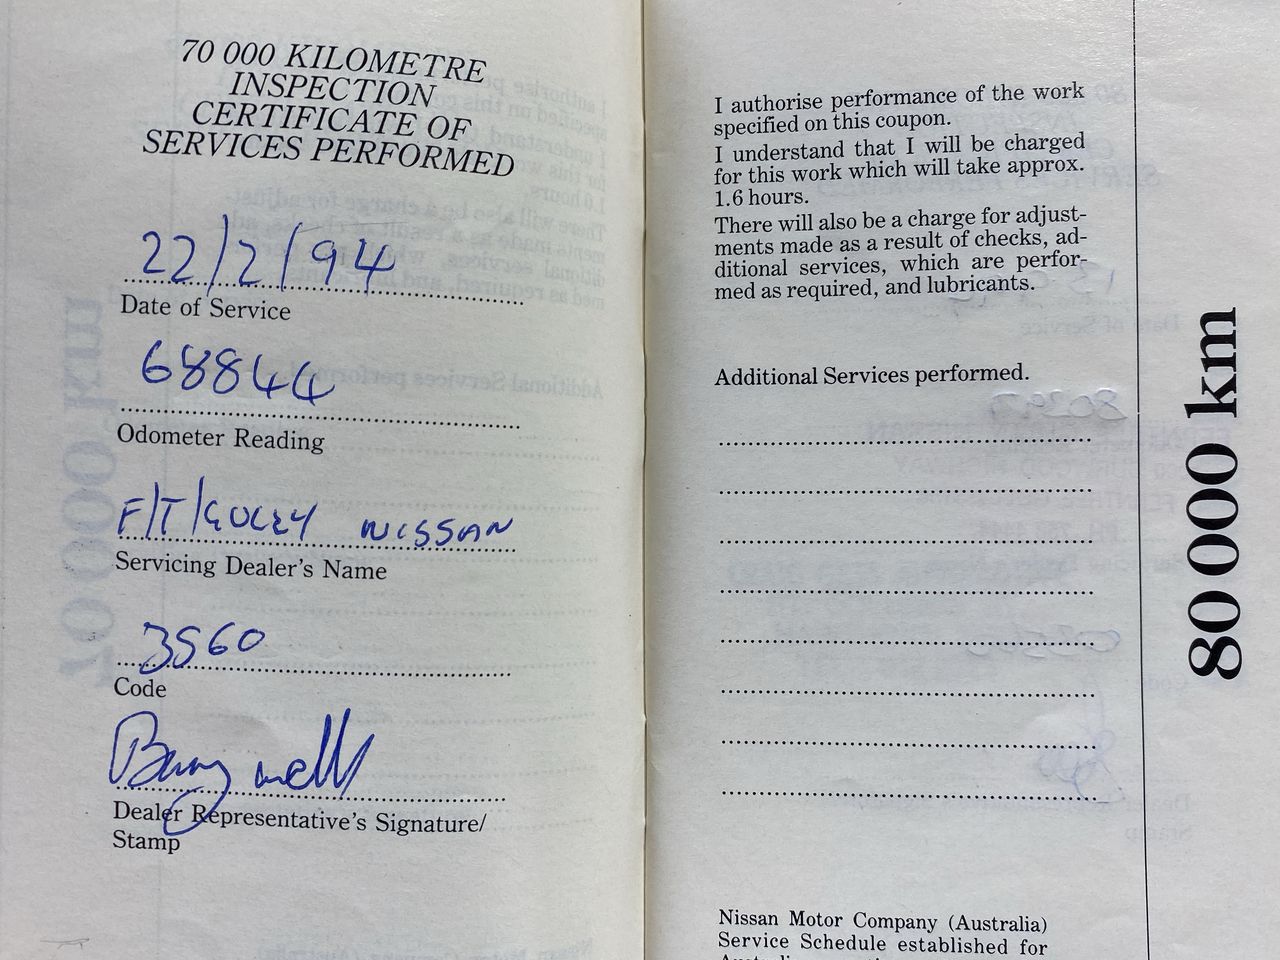 70 000 KILOMETRE
INSPECTION
CERTIFICATE OF
SERVICES PERFORMED
22/2/94
Date of Service
68844
Odometer Reading
F/T/GULLY NISSAN
Servicing Dealer's Name
3560
Code
Dealer Representative's Signature/
Stamp
I authorise performance of the work
specified on this coupon.
I understand that I will be charged
for this work which will take approx.
1.6 hours.
There will also be a charge for adjust-
ments made as a result of checks, ad-
ditional services, which are perfor-
med as required, and lubricants.
Additional Services performed.
Nissan Motor Company (Australia)
Service Schedule established for
80 000 km